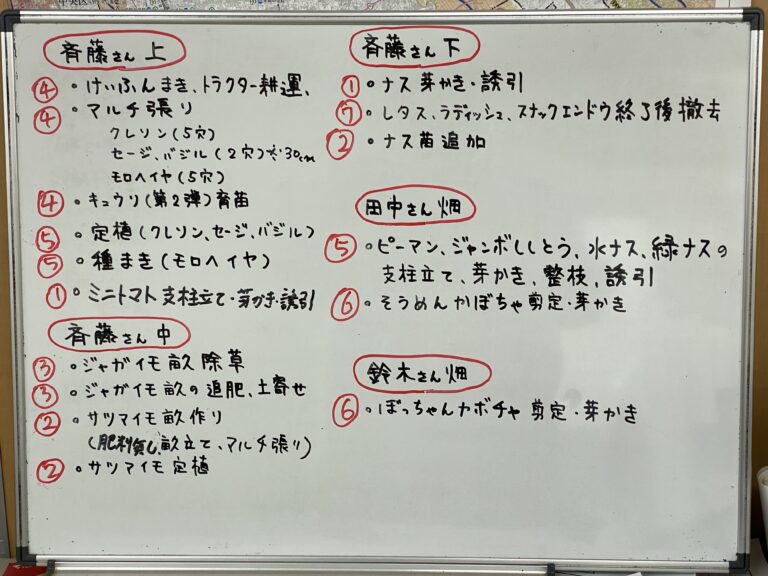 斉藤さん 上
④ ・けいふんまき、トラクター耕運、
④ ・マルチ張り
クレソン(5穴)
セージ、バジル(2穴)30cm
モロヘイヤ(5穴)
④ ・キュウリ(第2弾)育苗
⑤ ・定植(クレソン、セージ、バジル)
⑤ ・種まき(モロヘイヤ)
① ・ミニトマト支柱立て・芽かき・誘引
斉藤さん 中
③ ・ジャガイモ畝除草
③ ・ジャガイモ畝の追肥、土寄せ
② ・サツマイモ畝作り
(肥料貧し、畝立て、マルチ張り)
② ・サツマイモ定植
斉藤さん 下
① ・ナス芽かき・誘引
⑦ ・レタス、ラディッシュ、スナックエンドウ終了後撤去
② ・ナス苗追加
田中さん畑
⑤ ・ピーマン、ジャンボししとう、水ナス、緑ナスの
支柱立て、芽かき、整枝、誘引
⑥ ・そうめんかぼちゃ剪定・芽かき
鈴木さん畑
⑥ ・ぼっちゃんカボチャ剪定・芽かき